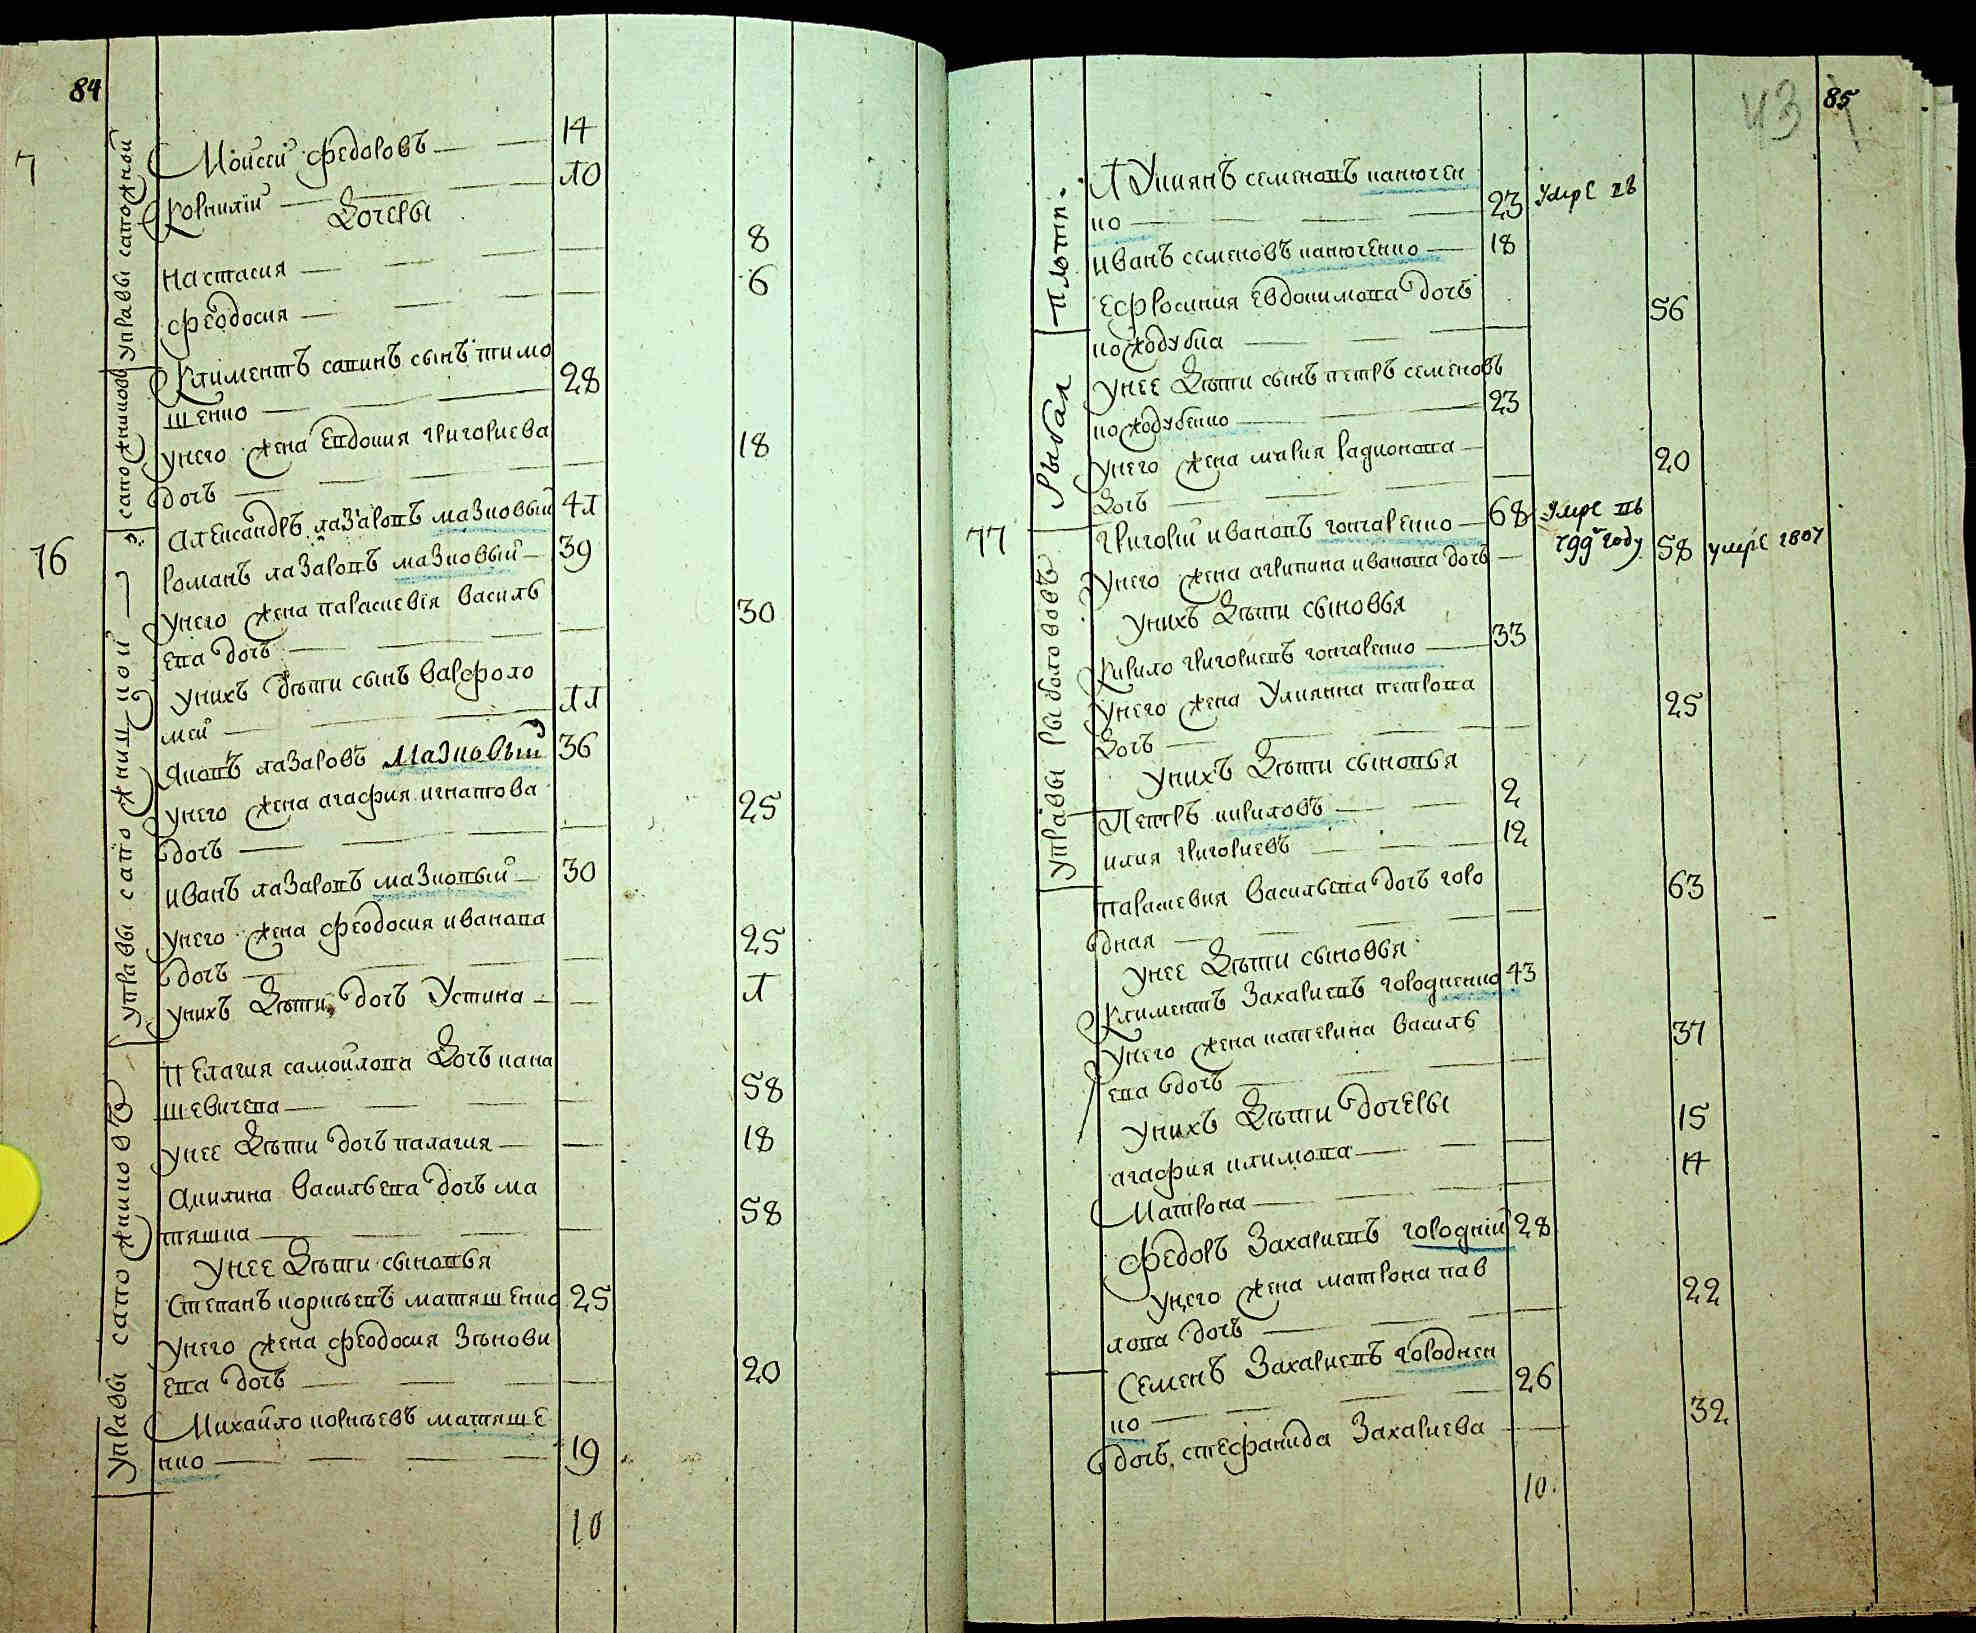 84
7
управы сапожной
Моисей Федоровъ 14
Корнилий 10
Дочеры
Настасия 8
Феодосия 6
сапожниковъ
Климентъ савинъ сынъ тимо
шенко 28
унего жена Евдокия григориева
дочь 18
76
управы сапожницкой
Александръ лазаровъ мазковый 41
Романъ лазаровъ мазковый 39
унего жена параскевия василь
ева дочь 30
унихъ дѣти сынъ варфоло
мей 11
Яковъ лазаровъ Мазковый 36
унего жена агафия игнатова
дочь 25
иванъ лазаровъ мазковый 30
унего жена феодосия иванова
дочь 25
унихъ Дѣти, дочь Устина 1
управы сапожниковъ
Пелагия самойлова Дочь кана
шевичева 58
унее Дѣти дочь палагия 18
Акилина васильева дочь ма
тяшка 58
Унее Дѣти сыновья
Степанъ корнѣевъ матяшенко 25
Унего жена феодосия Зѣнови
ева дочь 20
Михайло корнѣевъ матяше
нко 19
10
43
85
плотн.
Лукиянъ семеновъ канючен
ко 23 Умре въ
иванъ семеновъ канюченко 18
Ефросиния Евдокимова дочь
кождубка 56
Рыбал
Унее Дѣти сынъ петръ семеновъ
кождубенко 23
Унего жена мария Радионова
Дочь 20
77
управы рыболововъ
Григорий ивановъ гончаренко 68 Умре въ
799 году
Унего жена агрипина иванова дочь 58 умре 1807
Унихъ Дѣти сыновья
Кирило григориевъ гончаренко 33
Унего жена Улиянна петрова
Дочь 25
Унихъ Дѣти сыновья
Петръ кириловъ 2
илия григориевъ 12
параскевия васильева дочь голо
дная 63
Унее Дѣти сыновья
Климентъ Захариевъ голодненко 43
Унего жена катерина василь
ева дочь 37
Унихъ Дѣти дочеры
агафия климова 15
Матрона 14
Федоръ Захариевъ голодний 28
Унего жена матрона пав
лова дочь 22
Семенъ Захариевъ голоднен
ко 26
дочь стефанида Захариева 32
10.